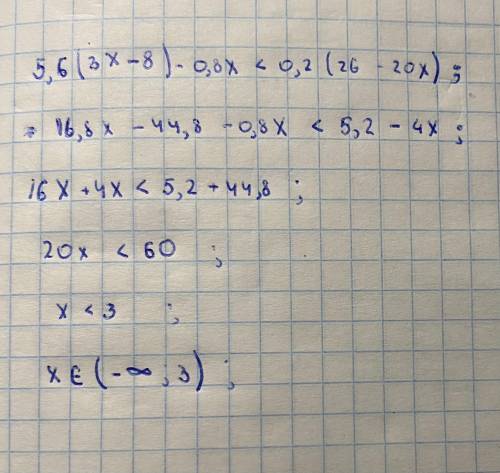 5,6(3x-8)-0,8x < 0,2(26-20x);
= 16,8x-44,8-0,8x < 5,2-4x;
16x+4x < 5,2+44,8;
20x < 60;
x < 3;
x∈(-∞;3);